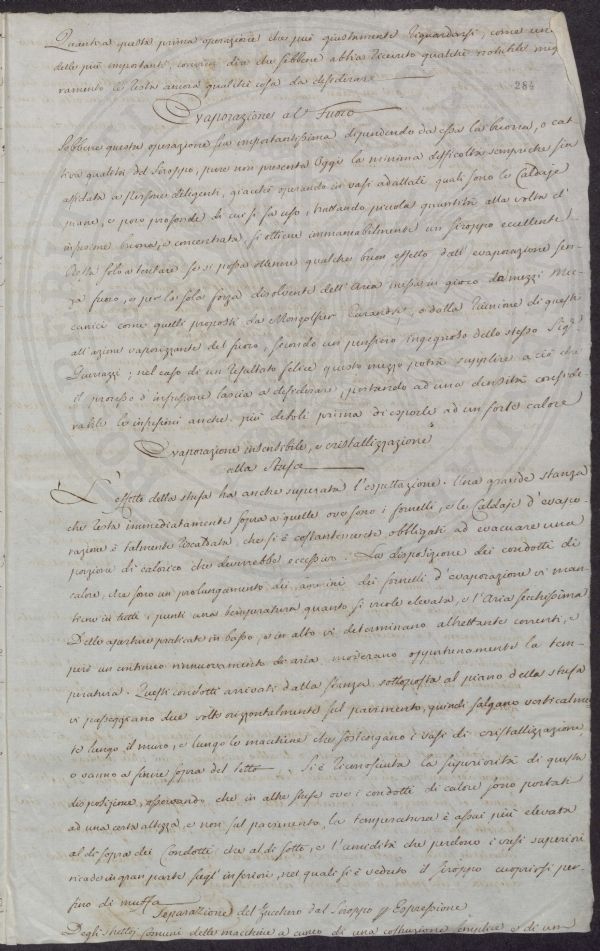 Quanto a questa prima operazione che può giustamente riguardarsi, come una
delle più importanti, convien dire che sebbene abbia ricevuto qualche notabile mig
ramento le resta ancora qualche cosa da desiderare
284
Evaporazione al Fuoco
Sebbene questa operazione sia importantissima dipendendo da essa la buona, o cat
tiva qualità del Siroppo, pure non presenta oggi la minima difficoltà sempreche sia
affidata a persone diligenti, giacchè operando in vasi adattati quali sono le Caldaje
piane, e poco profonde di cui si fa uso, trattando piccola quantità alla volta d'
infusione buona, e concentrata si ottiene immancabilmente un siroppo eccellente.
Resta solo a tentare se si possa ottenere qualche buon effetto dall'evaporazione sen
za fuoco, o per la sola forza dissolvente dell'Aria messa in gioco da mezzi mec
canici come quelli proposti da Mongolfier, o dalla riunione di questi
all'azione vaporizzante del fuoco, secondo un pensiero ingegnoso dello stesso Sig.r
; nel caso di un resultato felice questo mezzo potrà supplire a ciò che
il processo d'infusione lascia a desiderare, portando ad una densità conside
rabile le infusioni anche più deboli prima di esporle ad un forte calore
Evaporazione insensibile, e cristallizzazione
alla Stufa
L'effetto della stufa ha anche superata l'espettazione. Una grande stanza
che resta immediatamente sopra a quelle ove sono i fornelli, e le Caldaje d'evapo
razione è talmente riscaldata, che si è costantemente obbligati ad evacuare una
porzione di calorico che diverrebbe eccessivo. La disposizione dei condotti di
calore, che sono un prolungamento dei cammini dei fornelli d'evaporazione vi man
tiene in tutti i punti una temperatura quanto si vuole elevata, e l'Aria secchissima
Delle aperture praticate in basso, e in alto vi determinano altrettante correnti, e
però un continuo rinnuovamento di aria, moderano opportunamente la tem
peratura. Questi condotti arrivati dalla stanza sottoposta al piano della stufa
vi passeggiano due volte orizzontalmente sul pavimento, quindi salgano verticalmen
te lungo il muro, e lungo le macchine che sostengano i vasi di cristallizzazione
e vanno a finire sopra del tetto. Si è riconosciuta la superiorità di questa
disposizione, osservando che in altre stufe ove i condotti di calore sono portati
ad una certa altezza, e non sul pavimento, la temperatura è assai più elevata
al di sopra dei Condotti che al di sotto, e l'umidità che perdono i vasi superiori
ricade in gran parte negl'inferiori, nei quali si è veduto il siroppo cuoprirsi per
fino di muffa.
Separazione del Zucchero dal Siroppo p Espressione
Degli Strettoj comuni delle macchine a cuneo di una costruzione semplice e di un